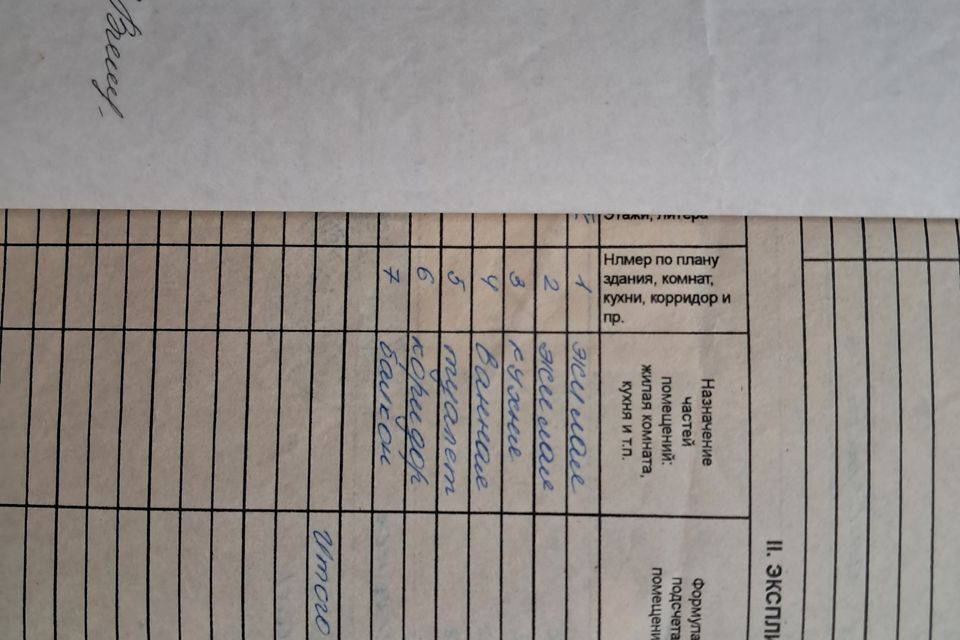 II. ЭКСПЛИ
Этажи, литера
Нлмер по плану
здания, комнат,
кухни, корридор и
пр.
Назначение
частей
помещений:
жилая комната,
кухня и т.п.
Формула
подсчета
помещени
1 жилая
2 жилая
3 кухня
4 ванная
5 туалет
6 коридор
7 балкон
Итого